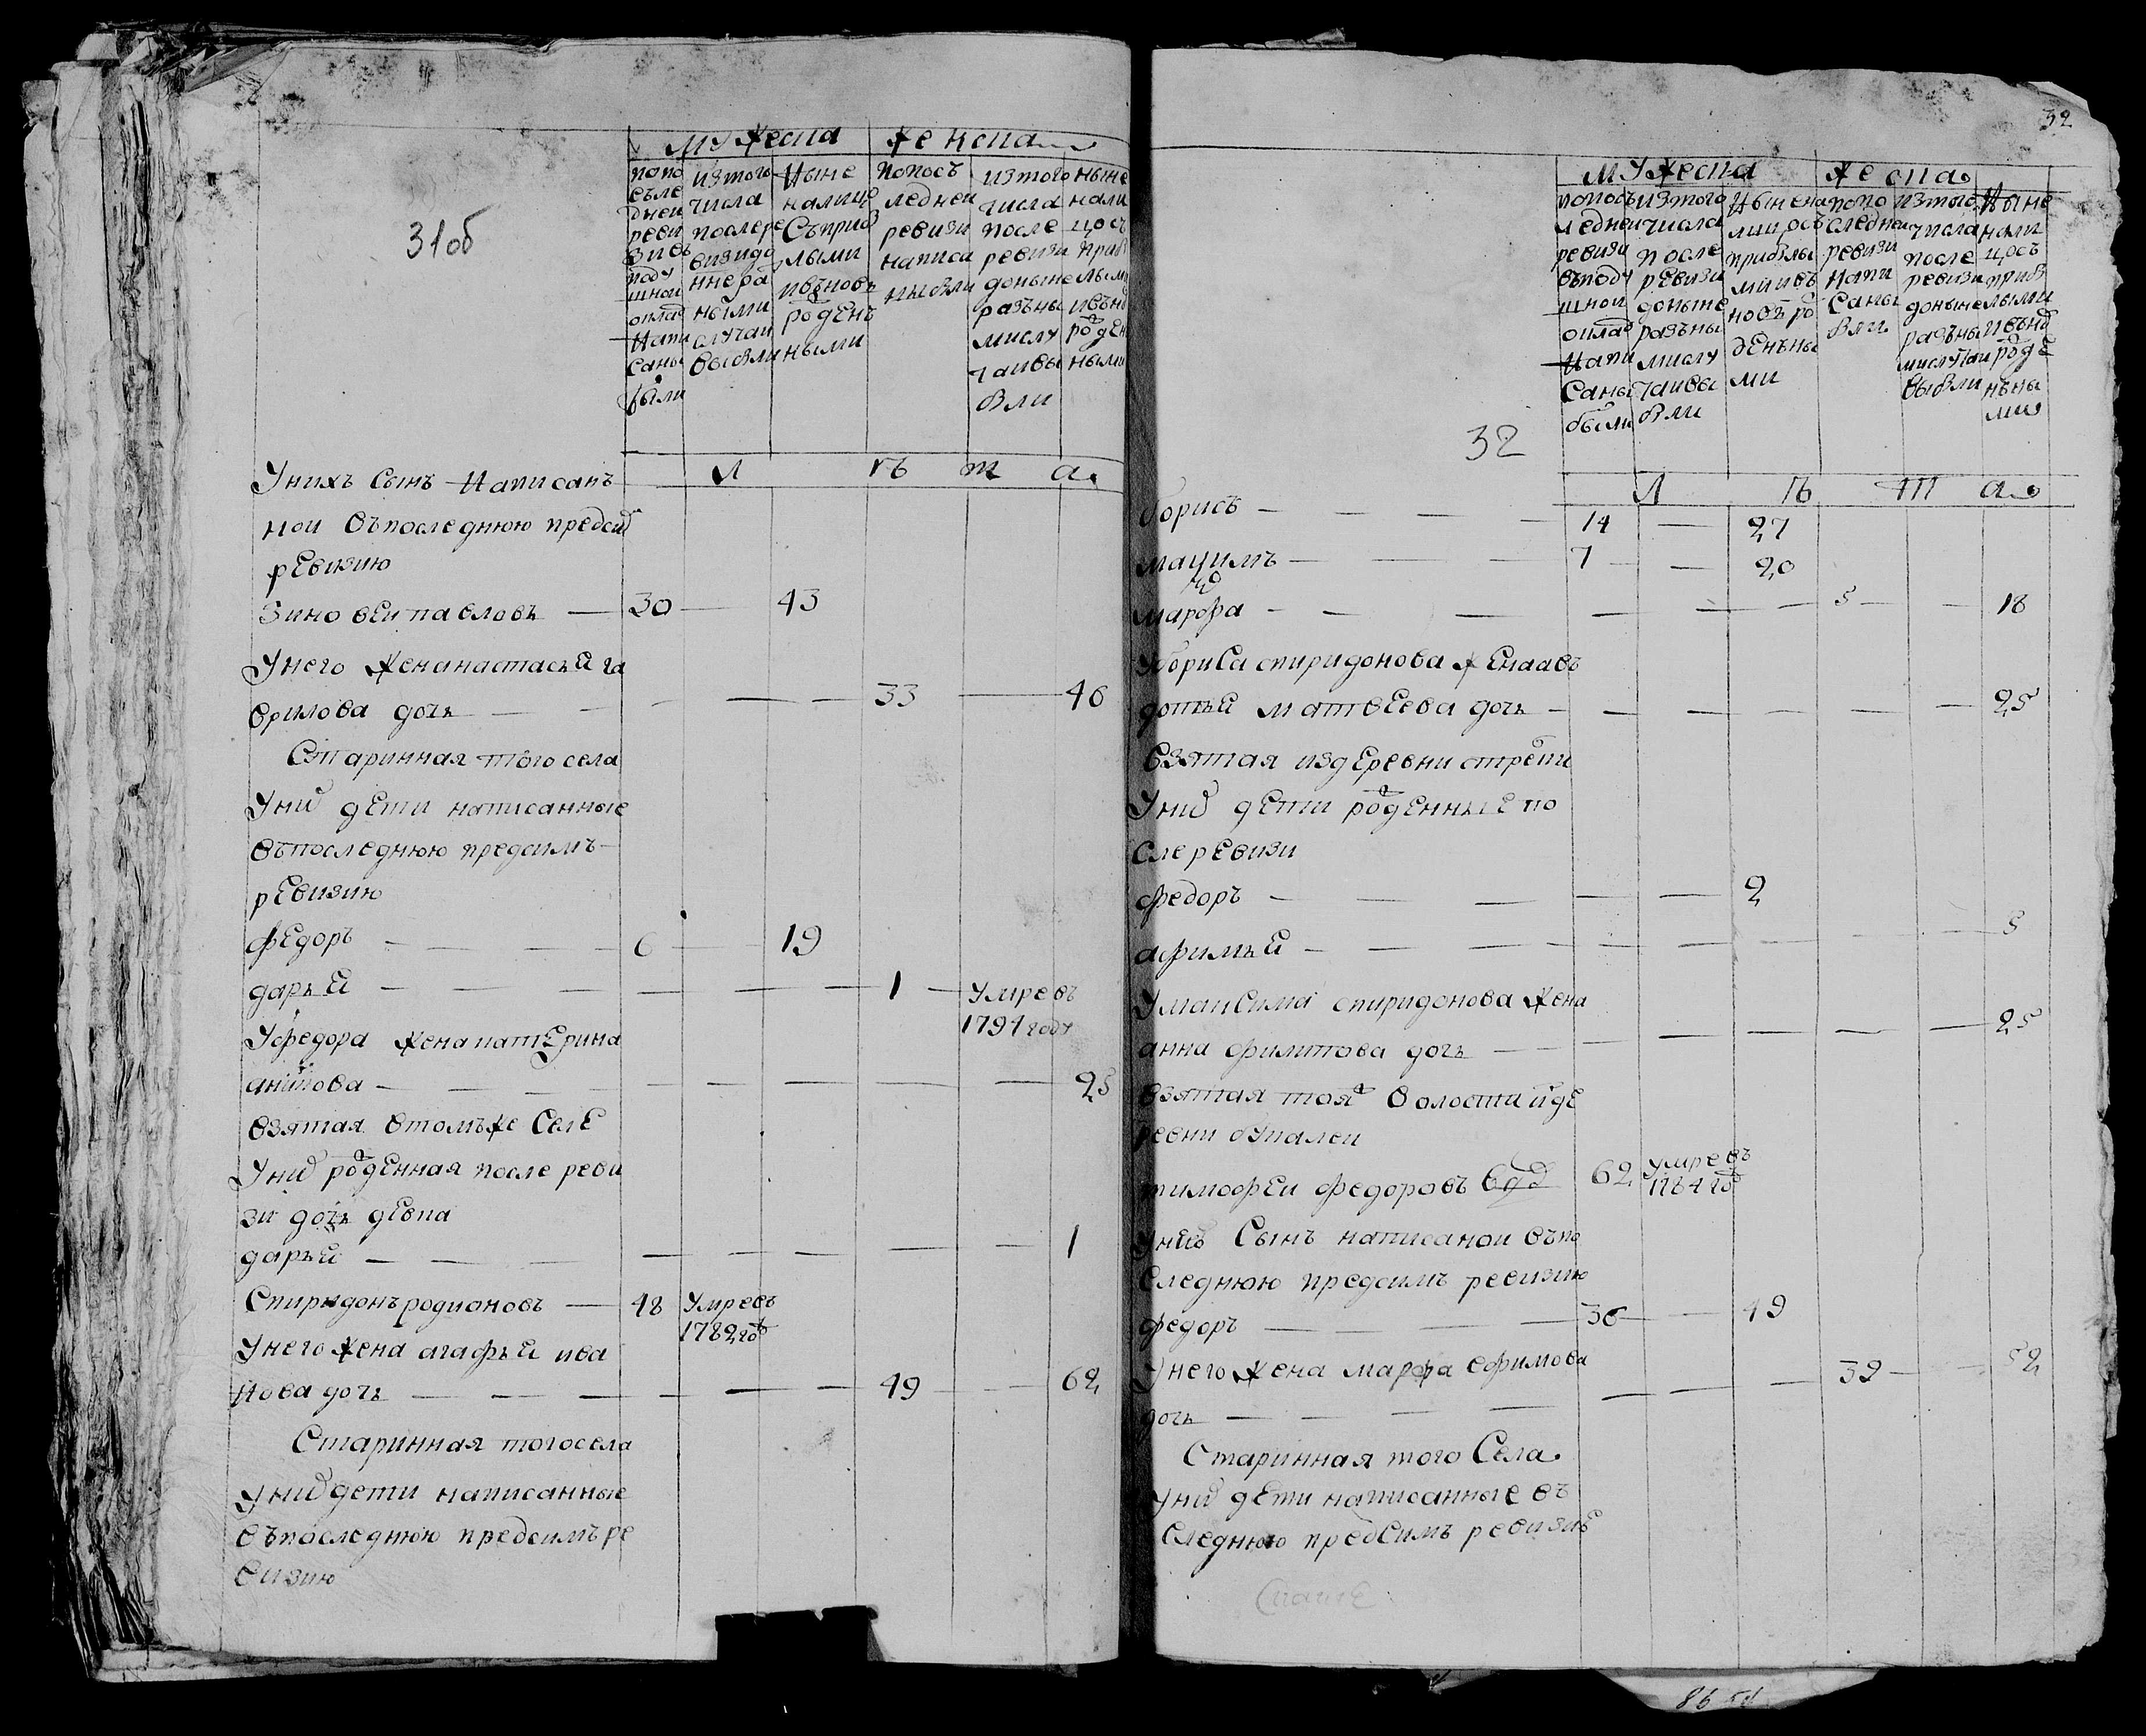 31об
мужеска женска
попо
следней
реви
зи въ
поду
шной
оклад
напи
саны
были
изтого
числа
послере
визи до
ныне ра
зными
случаи
выбыли
Ныне
налицо
съприб
лыми
ивьновь
рожден
ными
попось
ледней
ревизи
написа
ны были
изтого
числа
после
ревизи
доныне
разны
ми слу
чаи вы
были
ныне
нали
цось
приб
лыми
ивьн
рожден
ными
л ѣ т а.
Унихъ сынъ написанъ
ной въпоследнюю предсим
ревизию
Зиновей павловъ — 30 — 43
Унего жена настасья га
врилова дочь — — — — — 33 — 46
Старинная того села
Уних дети написанные
въпоследнюю предсимъ
ревизию
федоръ — — — — 6 — 19
дарья — — — — — — 1 — умре въ
1794 году
Уфедора жена катерина
антпова — — — — — — — — 25
взятая втомъже селе
Уних рожденная после реви
зи дочь девка
дарья — — — — — — — — 1
Спиридонъ родионовъ — 48 умре въ
1782 год
Унего жена агафья ива
нова дочь — — — — — — 49 — 62
Старинная того села
Уних дети написанные
въпоследнюю предсимъ ре
визию
32
32
мужеска жеска
попось
ледней
ревизи
въподу
шной
оклад
напи
саны
были
изтого
числа
после
ревизи
доныне
разны
ми слу
чаи вы
были
Ныне на
лицось
прибы
ми ивь
новь ро
жденны
ми
попо
следней
ревизи
напи
саны
были
изтого
числа
после
ревизи
доныне
разны
ми случаи
выбыли
Ныне
нали
цось
приб
лыми
ивьн
рожде
нъны
ми
Л ѣ т а.
борисъ — — — — 14 — 27
мацимъ — — — 7 — — 20
марфа — — — — — — 5 — — 18
Убориса спиридонова жена авъ
дотья матвеева дочь — — — — — — 25
взятая издеревни
Уних дети рожденные по
сле ревизи
федоръ — — — — — — 2
афимья — — — — — — — — — 5
Умаксима спиридонова жена
анна филипова дочь — — — — — — — 25
взятая тояж волости изде
ревни
тимофей федоровъ 62 умре въ
1784 год
Уних сынъ написаной въпо
следнюю предсимъ ревизию
федоръ — — — — 36 — — 49
Унего жена марфа ефимова
дочь — — — — — — — 39 — — 52
Старинная того Села.
Уних дети написанные въ
следнюю предсимъ ревизие
86